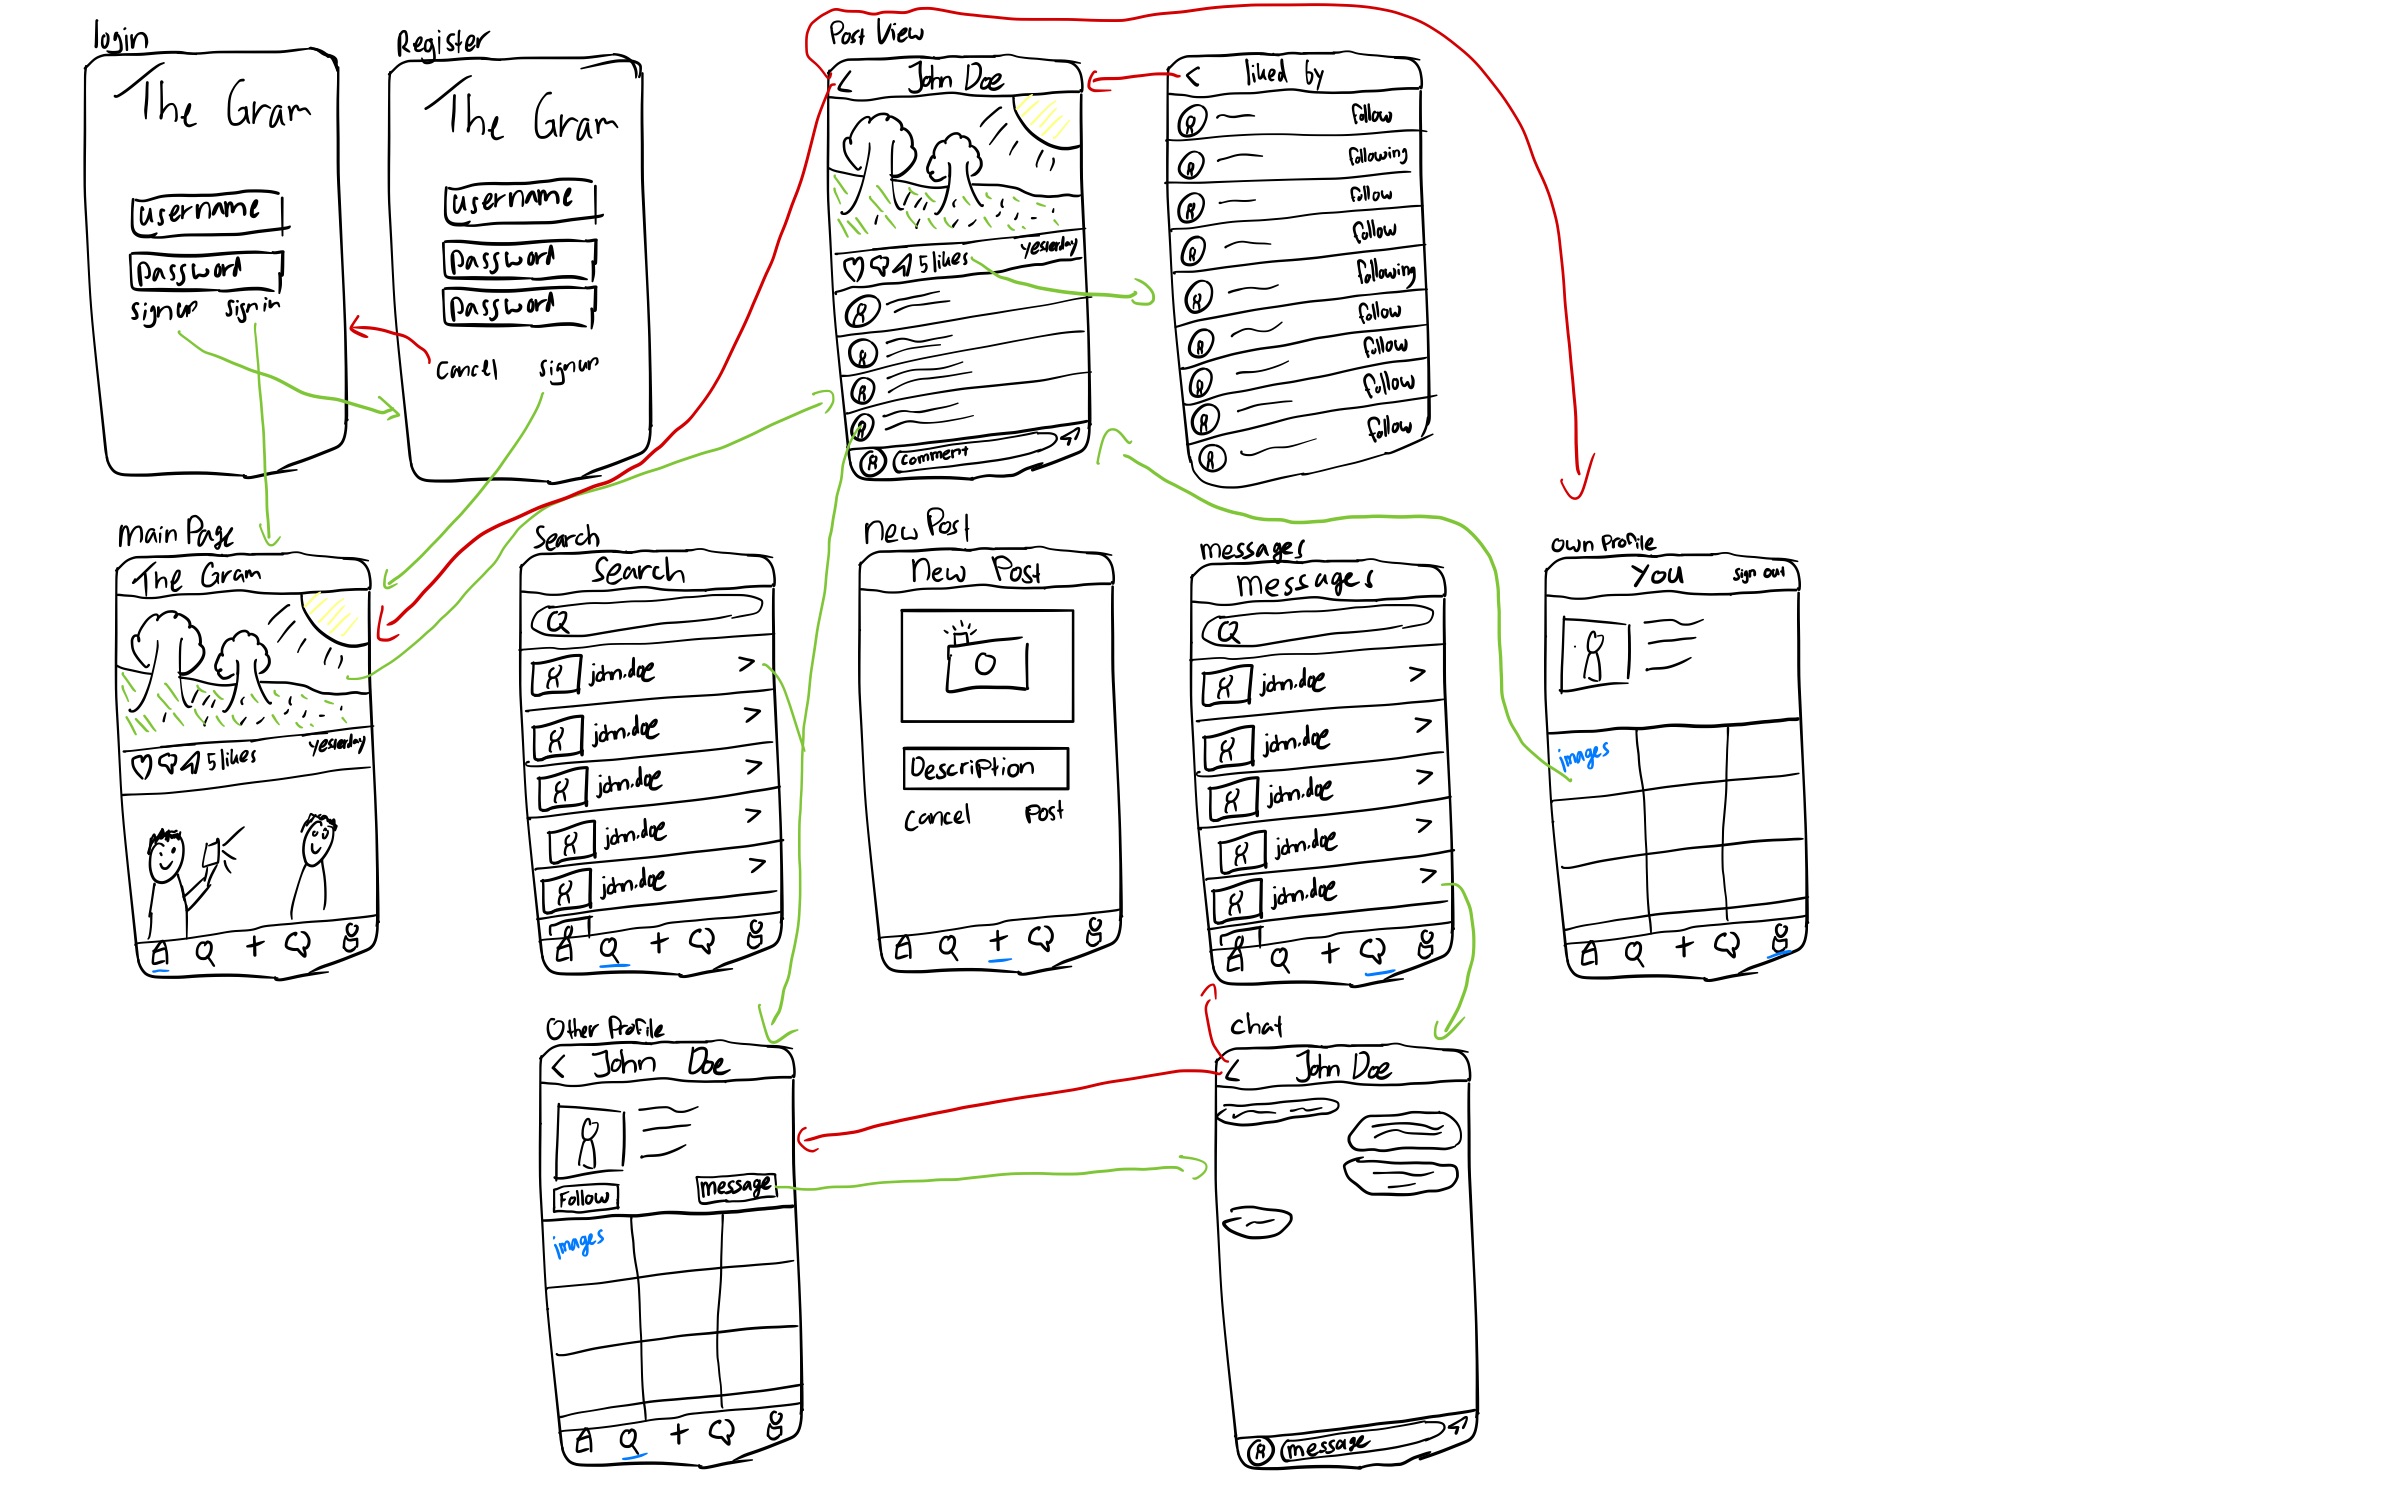 login
The Gram
username
password
signup signin
Register
The Gram
username
password
password
Cancel signup
Post View
< John Doe
5 likes yesterday
comment
< liked by
follow
following
follow
follow
following
follow
follow
follow
follow
Main Page
The Gram
5 likes yesterday
Search
Search
john.doe >
john.doe >
john.doe >
john.doe >
john.doe >
New Post
New Post
Description
Cancel Post
messages
messages
john.doe >
john.doe >
john.doe >
john.doe >
john.doe >
Own Profile
You sign out
images
Other Profile
< John Doe
Follow message
images
Chat
< John Doe
message